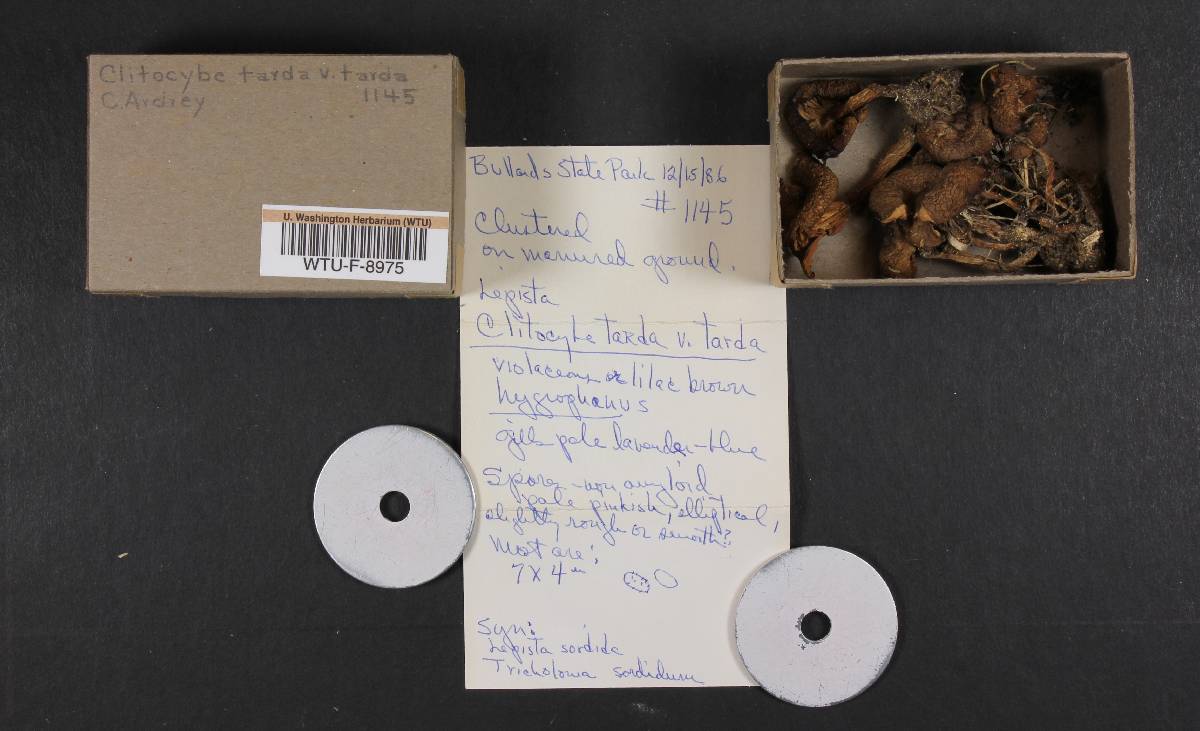 Clitocybe tarda v. tarda
C. Ardrey 1145
U. Washington Herbarium (WTU)
WTU-F-8975
Bullards State Park 12/15/86
# 1145
Clustered
on manured ground.
Lepista
Clitocybe tarda v. tarda
violaceous or lilac brown
hygrophanus
gills pale lavender-blue
Spores - non amyloid
pale pinkish, elliptical,
slightly rough or smooth?
Most are:
7 X 4
Syn:
Lepista sordida
Tricholoma sordidum